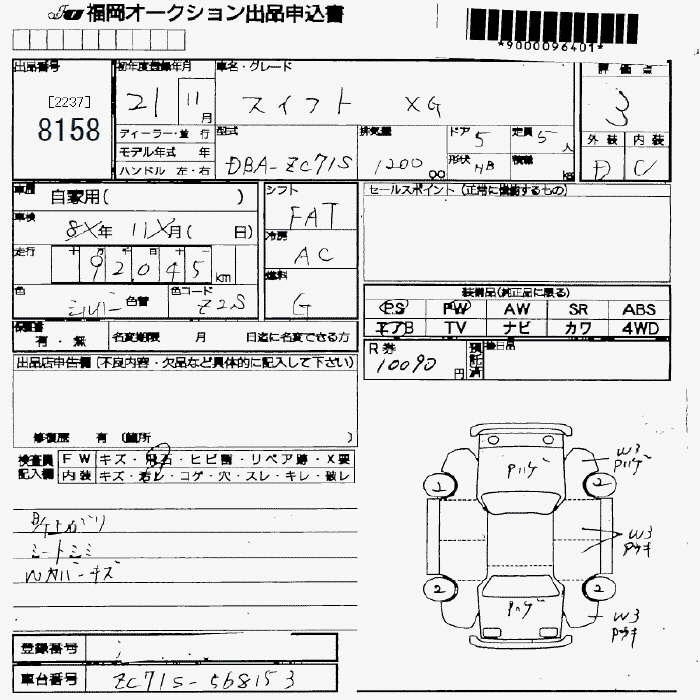 福岡オークション出品申込書
*9000096401*
出品番号 初年度登録年月 車名・グレード 評価点
[2237]
8158
21 11月 スイフト XG 3
ディーラー・並行 型式 排気量 ドア 5 定員 5人 外装 内装
モデル年式 年 DBA-ZC71S 1200cc 形状 HB 積載 kg D C
ハンドル 左・右
車歴 自家用( ) シフト FAT セールスポイント (正常に機能するもの)
車検 年 11月( 日) 冷房 AC
走行 十 万 千 百 十 92045 km 燃料 G
色 シルバー 色替 色コード Z2S
装備品(純正品に限る)
PS PW AW SR ABS
エアB TV ナビ カワ 4WD
保証書 有・無 名変期限 月 日迄に名変できる方
R券 10090円 預託済 後日品
出品店申告欄 (不良内容・欠品など具体的に記入して下さい)
修復歴 有 (箇所 )
検査員記入欄 FW キズ・飛石・ヒビ菌・リペア跡・X要
内装 キズ・汚レ・コゲ・穴・スレ・キレ・破レ
シートシミ
W3
Pハゲ
Pハゲ
2 2
W3
Pウキ
2 2
Pハゲ
W3
Pウキ
登録番号
車台番号 ZC71S-568153